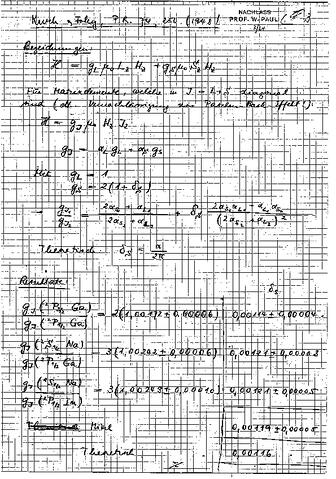 Kusch & Foley, P.R. 74, 250 (1948)
NACHLASS
PROF. W. PAUL
Bezeichnungen
ℋ = g_L μ₀ L_z H_z + g_S μ₀ S_z H_z
Für Matrixelemente, welche in J = L+S diagonal
sind (d.h. Vernachlässigung des Paschen Back Effekt!):
ℋ = g_J μ₀ H_z J_z
g_J = α_L g_L + α_S g_S
Mit g_L = 1
g_S = 2(1 + δ_S)
g_J₁/g_J₂ = (2α_S₁ + α_L₁)/(2α_S₂ + α_L₂) + δ_S (2α_S₁α_L₂ − α_L₁α_S₂)/(2α_S₂ + α_L₂)²
Theoretisch δ_S = α/2π
Resultate:
δ_S
g_J(²P₃/₂ Ga)/g_J(²P₁/₂ Ga) = 2(1,00172 ± 0,00006) 0,00114 ± 0,00004
g_J(²S₁/₂ Na)/g_J(²P₁/₂ Ga) = 3(1,00242 ± 0,00006) 0,00121 ± 0,00003
g_J(²S₁/₂ Na)/g_J(²P₁/₂ In) = 3(1,00243 ± 0,00010) 0,00121 ± 0,00005
Mittel 0,00119 ± 0,00005
Theoretisch 0,00116